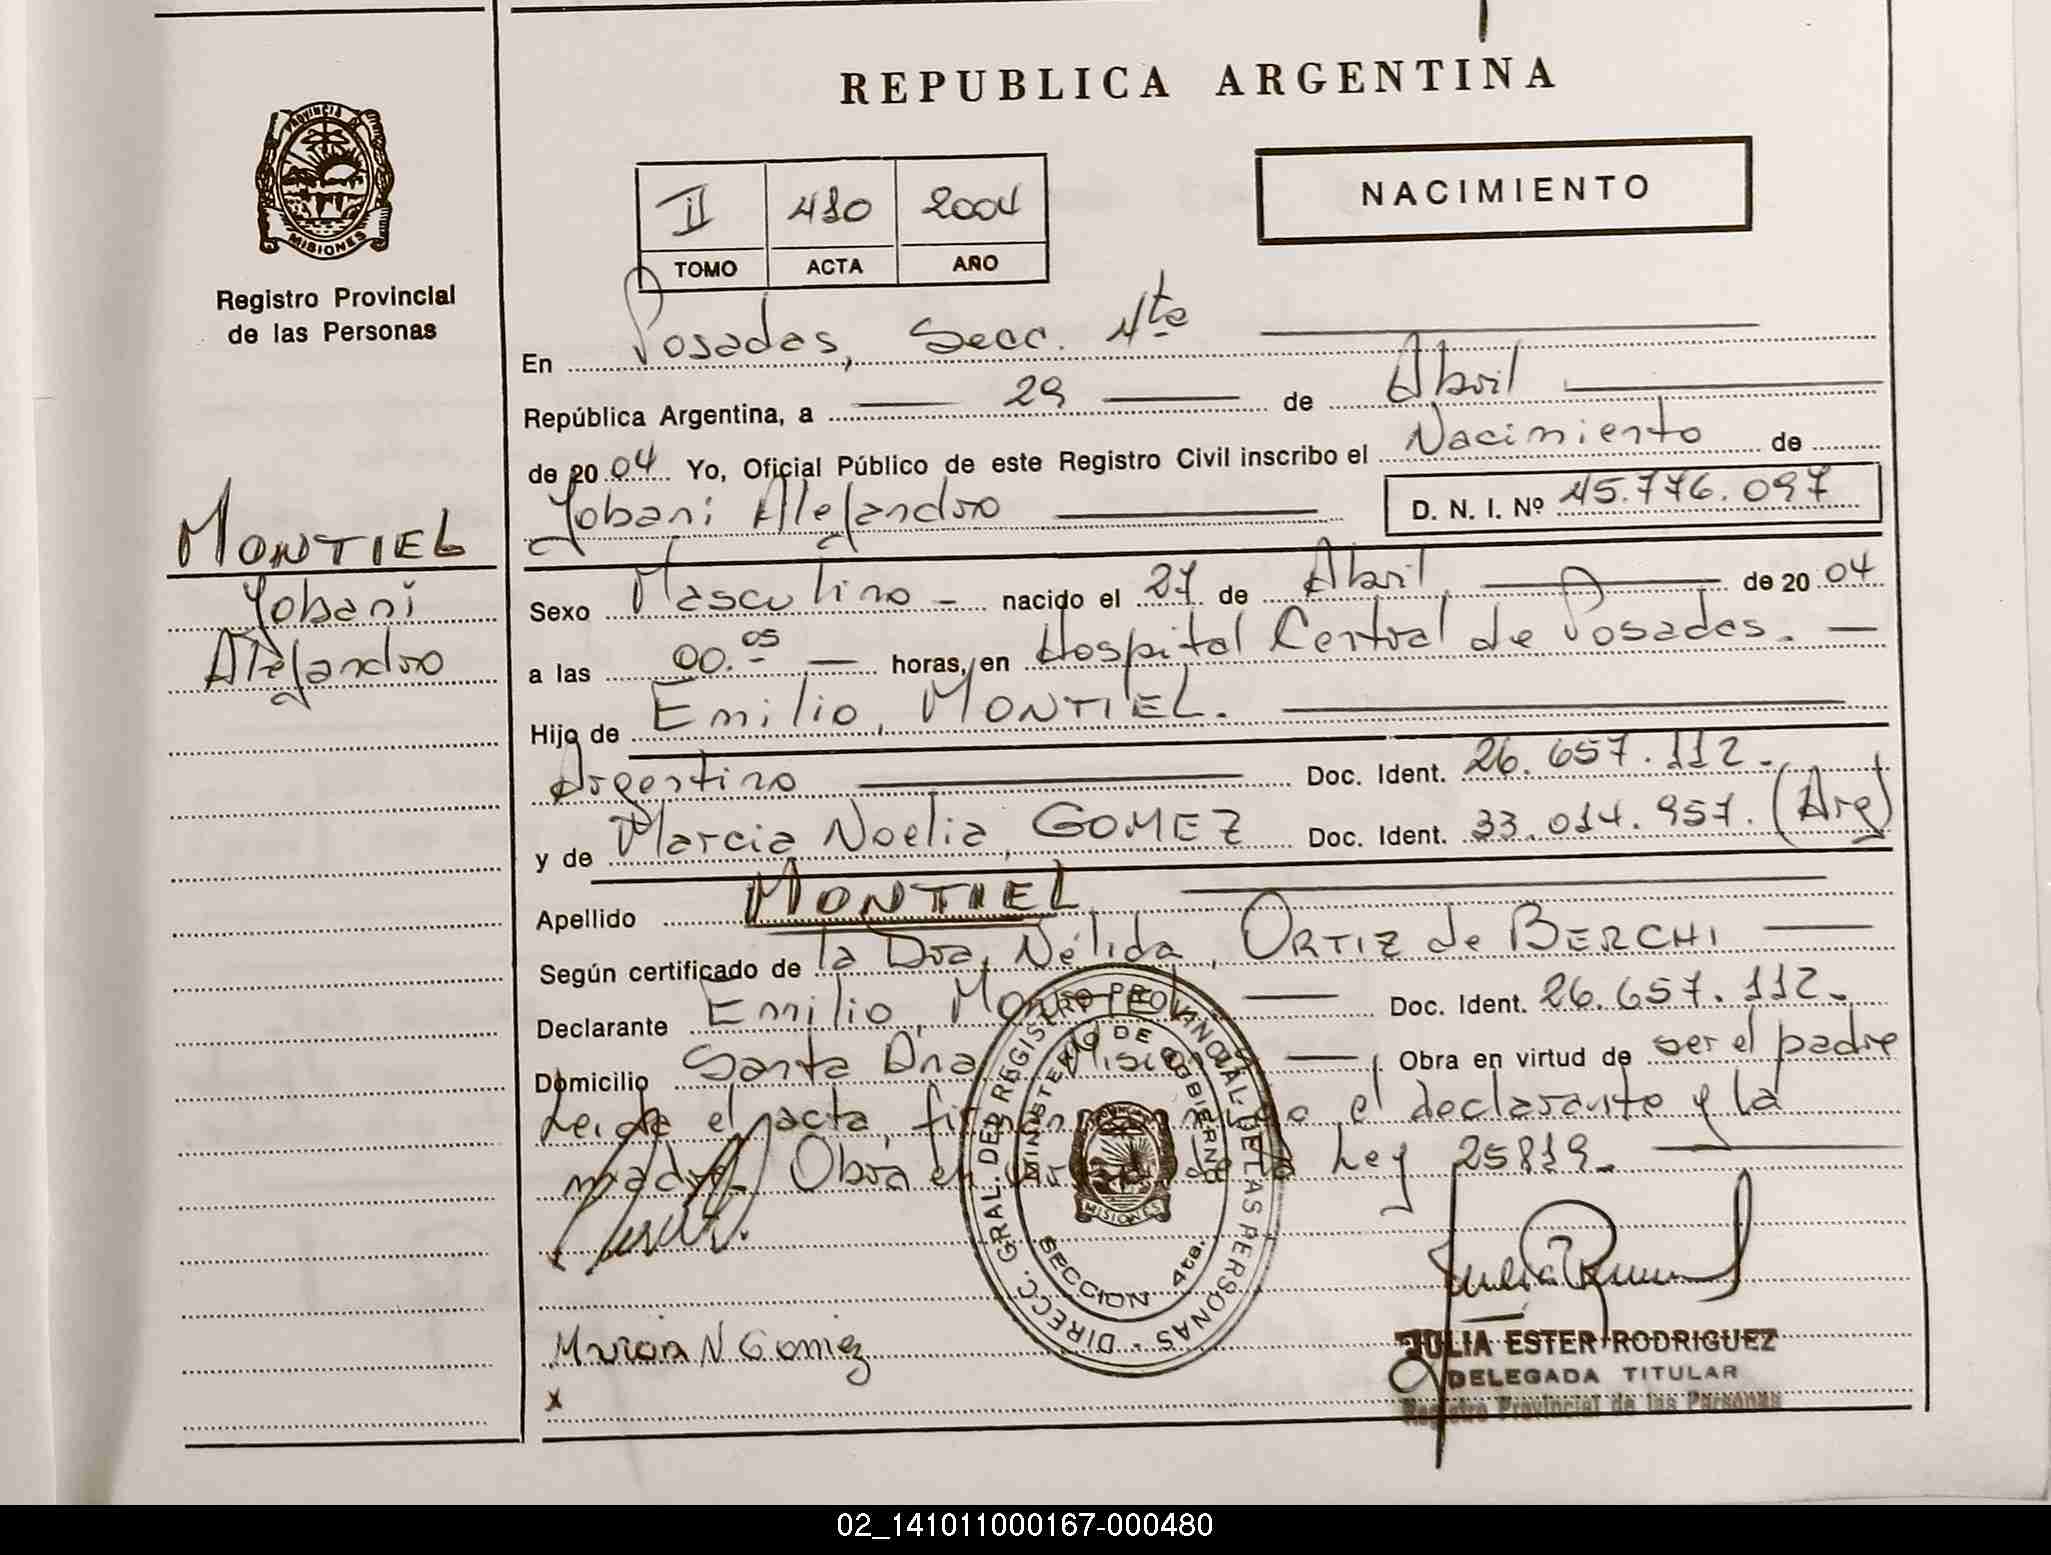 REPUBLICA ARGENTINA
PROVINCIA DE
MISIONES
Registro Provincial
de las Personas
NACIMIENTO
II 480 2004
TOMO ACTA AÑO
En Posadas, Secc. 4ta
República Argentina, a 29 de Abril
de 2004 Yo, Oficial Público de este Registro Civil inscribo el Nacimiento de
Yobani Alejandro D. N. I. Nº 45.776.097
MONTIEL
Yobani
Alejandro
Sexo Masculino - nacido el 27 de Abril de 2004
a las 00.05 horas, en Hospital Central de Posadas.
Hijo de Emilio, MONTIEL.
Argentino Doc. Ident. 26.657.112.
y de Marcia Noelia, GOMEZ Doc. Ident. 33.014.957. (Arg)
Apellido MONTIEL
Según certificado de la Dra. Nélida, ORTIZ de BERCHI
Declarante Emilio, Montiel Doc. Ident. 26.657.112.
Domicilio Santa Ana Misiones Obra en virtud de ser el padre
Leida el acta, firman el declarante y la
madre. Obra en de la Ley 25819.
DIRECC. GRAL. DEL REGISTRO PROVINCIAL DE LAS PERSONAS
MINISTERIO DE GOBIERNO
MISIONES
SECCION 4ta.
Marcia N Gomez
x
JULIA ESTER RODRIGUEZ
DELEGADA TITULAR
Registro Provincial de las Personas
02_141011000167-000480